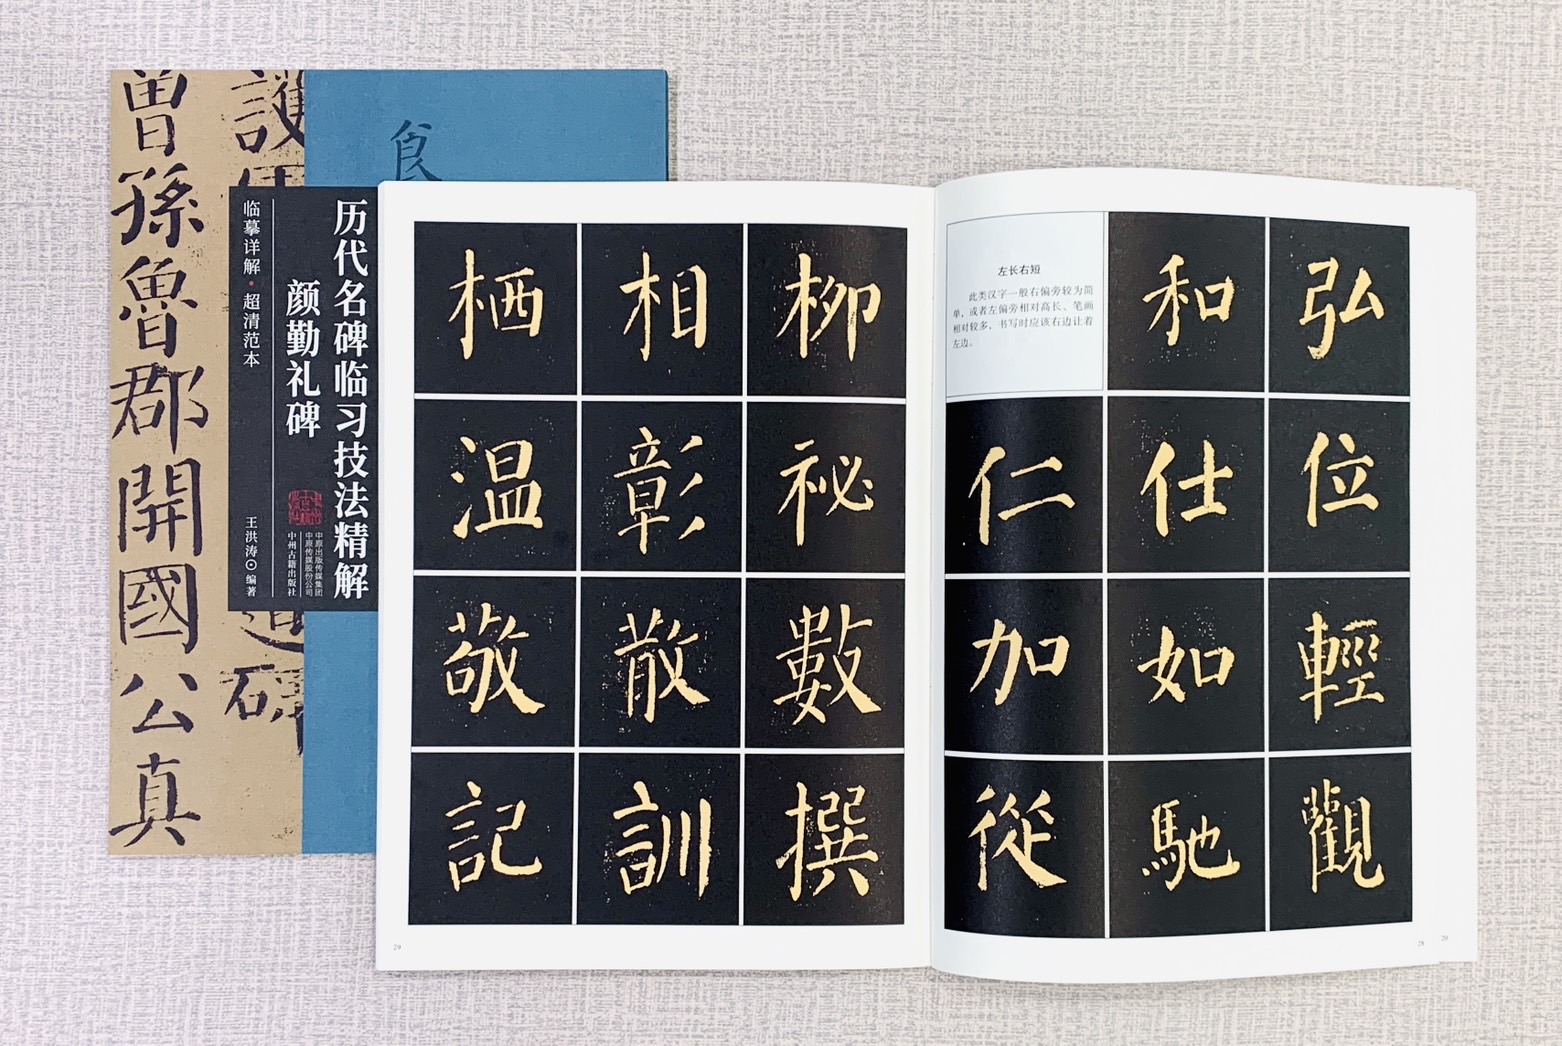 曾孫魯郡開國公真
護
碑
食
历代名碑临习技法精解
颜勤礼碑
临摹详解·超清范本
王洪涛⊙编著
中原出版传媒集团
中原传媒股份公司
中州古籍出版社
栖 相 柳
温 彰 祕
敬 散 數
記 訓 撰
29
左长右短
此类汉字一般右偏旁较为简
单，或者左偏旁相对高长、笔画
相对较多，书写时应该右边让着
左边。
和 弘
仁 仕 位
加 如 輕
從 馳 觀
28
29